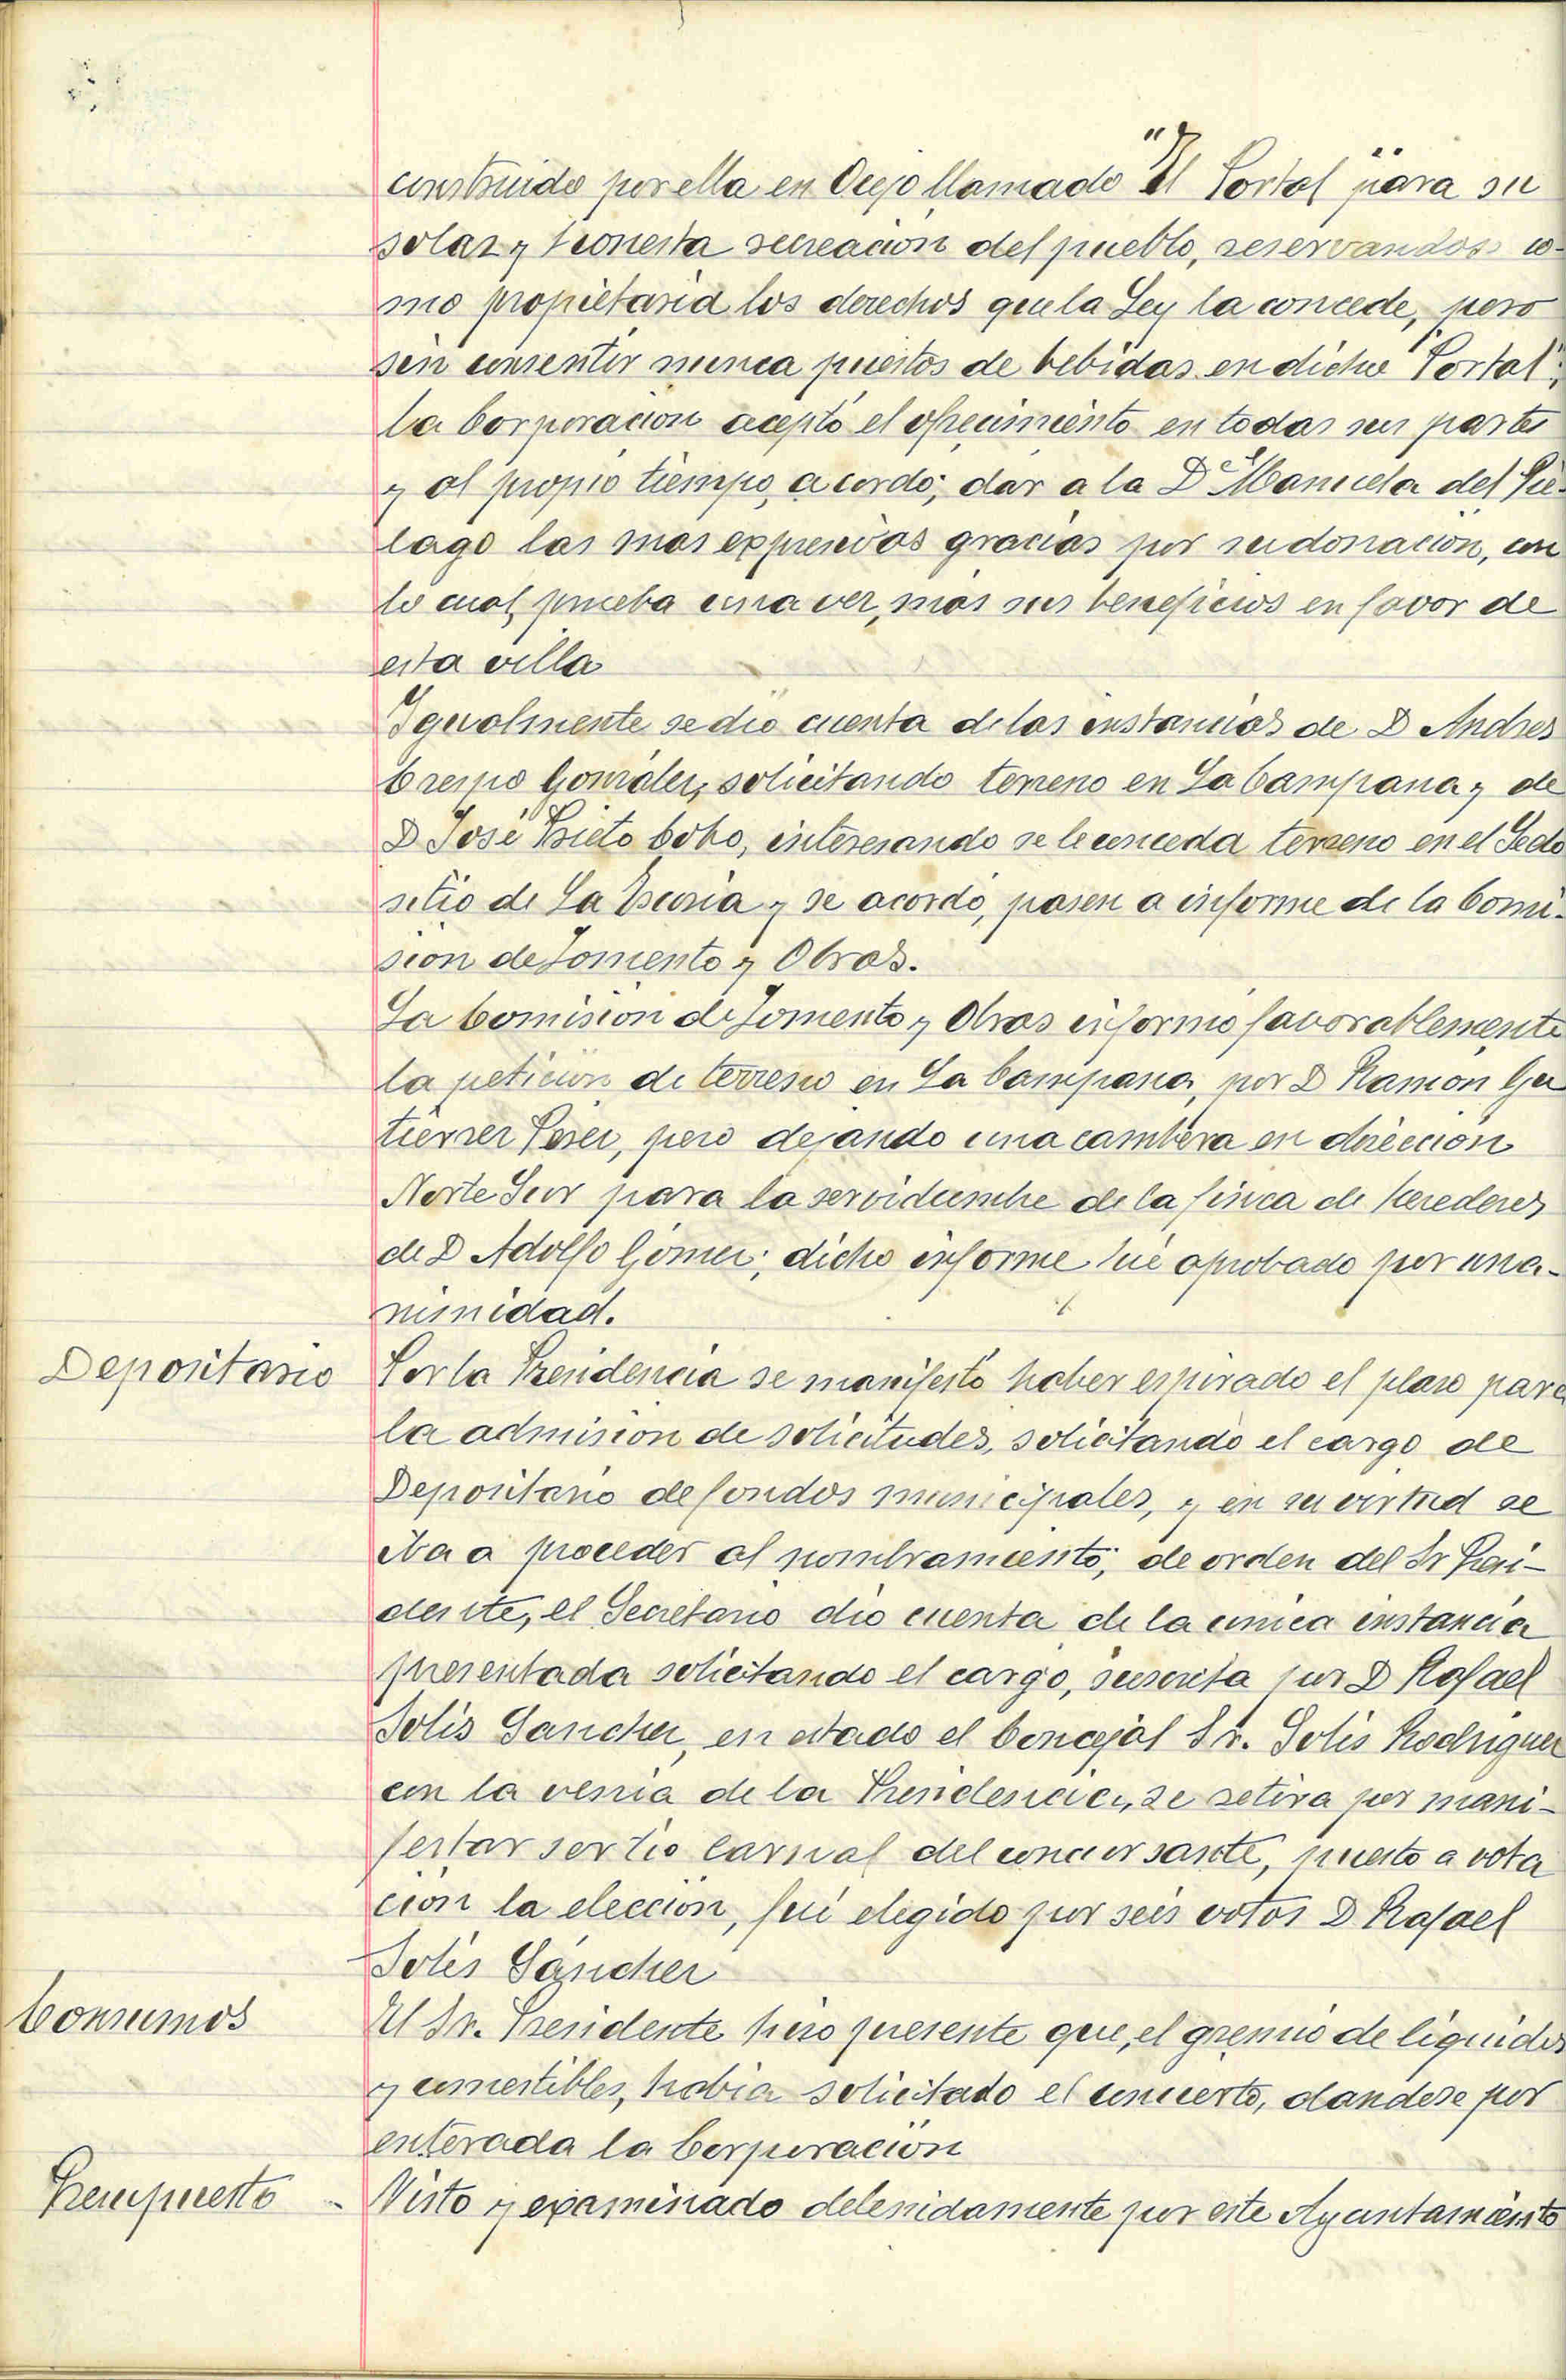 construido por ella en Ocejo llamado "El Portal" para su
solaz y honesta recreación del pueblo, reservandose co-
mo propietaria los derechos que la Ley la concede, pero
sin consentir nunca puestos de bebidas en dicho "Portal";
la Corporacion aceptó el ofrecimiento en todas sus partes
y al propio tiempo, acordó; dar a la Dª Manuela del Pie-
lago las mas expresivas gracias por su donacion, con
lo cual, prueba una vez, mas sus beneficios en favor de
esta villa
Igualmente se dio cuenta de las instancias de D Andres
Crespo Gonzalez, solicitando terreno en La Campana y de
D José Prieto Cobo, interesando se le conceda terreno en el
sitio de La y se acordó, pasen a informe de la Comi-
sion de Fomento y Obras.
La Comision de Fomento y Obras informó favorablemente
la petición de terreno en La Campana, por D Ramon Gu
tierrez Perez, pero dejando una cambera en dirección
Norte Sur para la servidumbre de la finca de herederos
de D Adolfo Gómez; dicho informe fué aprobado por una-
nimidad.
Depositario
Por la Presidencia se manifestó haber espirado el plazo para
la admision de solicitudes, solicitando el cargo de
Depositario de fondos municipales, y en su virtud se
iba a proceder al nombramiento; de orden del Sr Presi-
dente, el Secretario dio cuenta de la unica instancia
presentada solicitando el cargo, suscrita por D Rafael
Solis Sanchez, en estado el Concejal Sr. Solis Rodriguez
con la venia de la Presidencia, se retira por mani-
festar ser tio carnal del concursante, puesto a vota
ción la elección, fué elegido por seis votos D Rafael
Solis Sánchez
Consumos
El Sr. Presidente hizo presente que, el gremio de liquidos
y comestibles, habia solicitado el concierto, dandose por
enterada la Corporación
Presupuesto -
Visto y examinado detenidamente por este Ayuntamiento